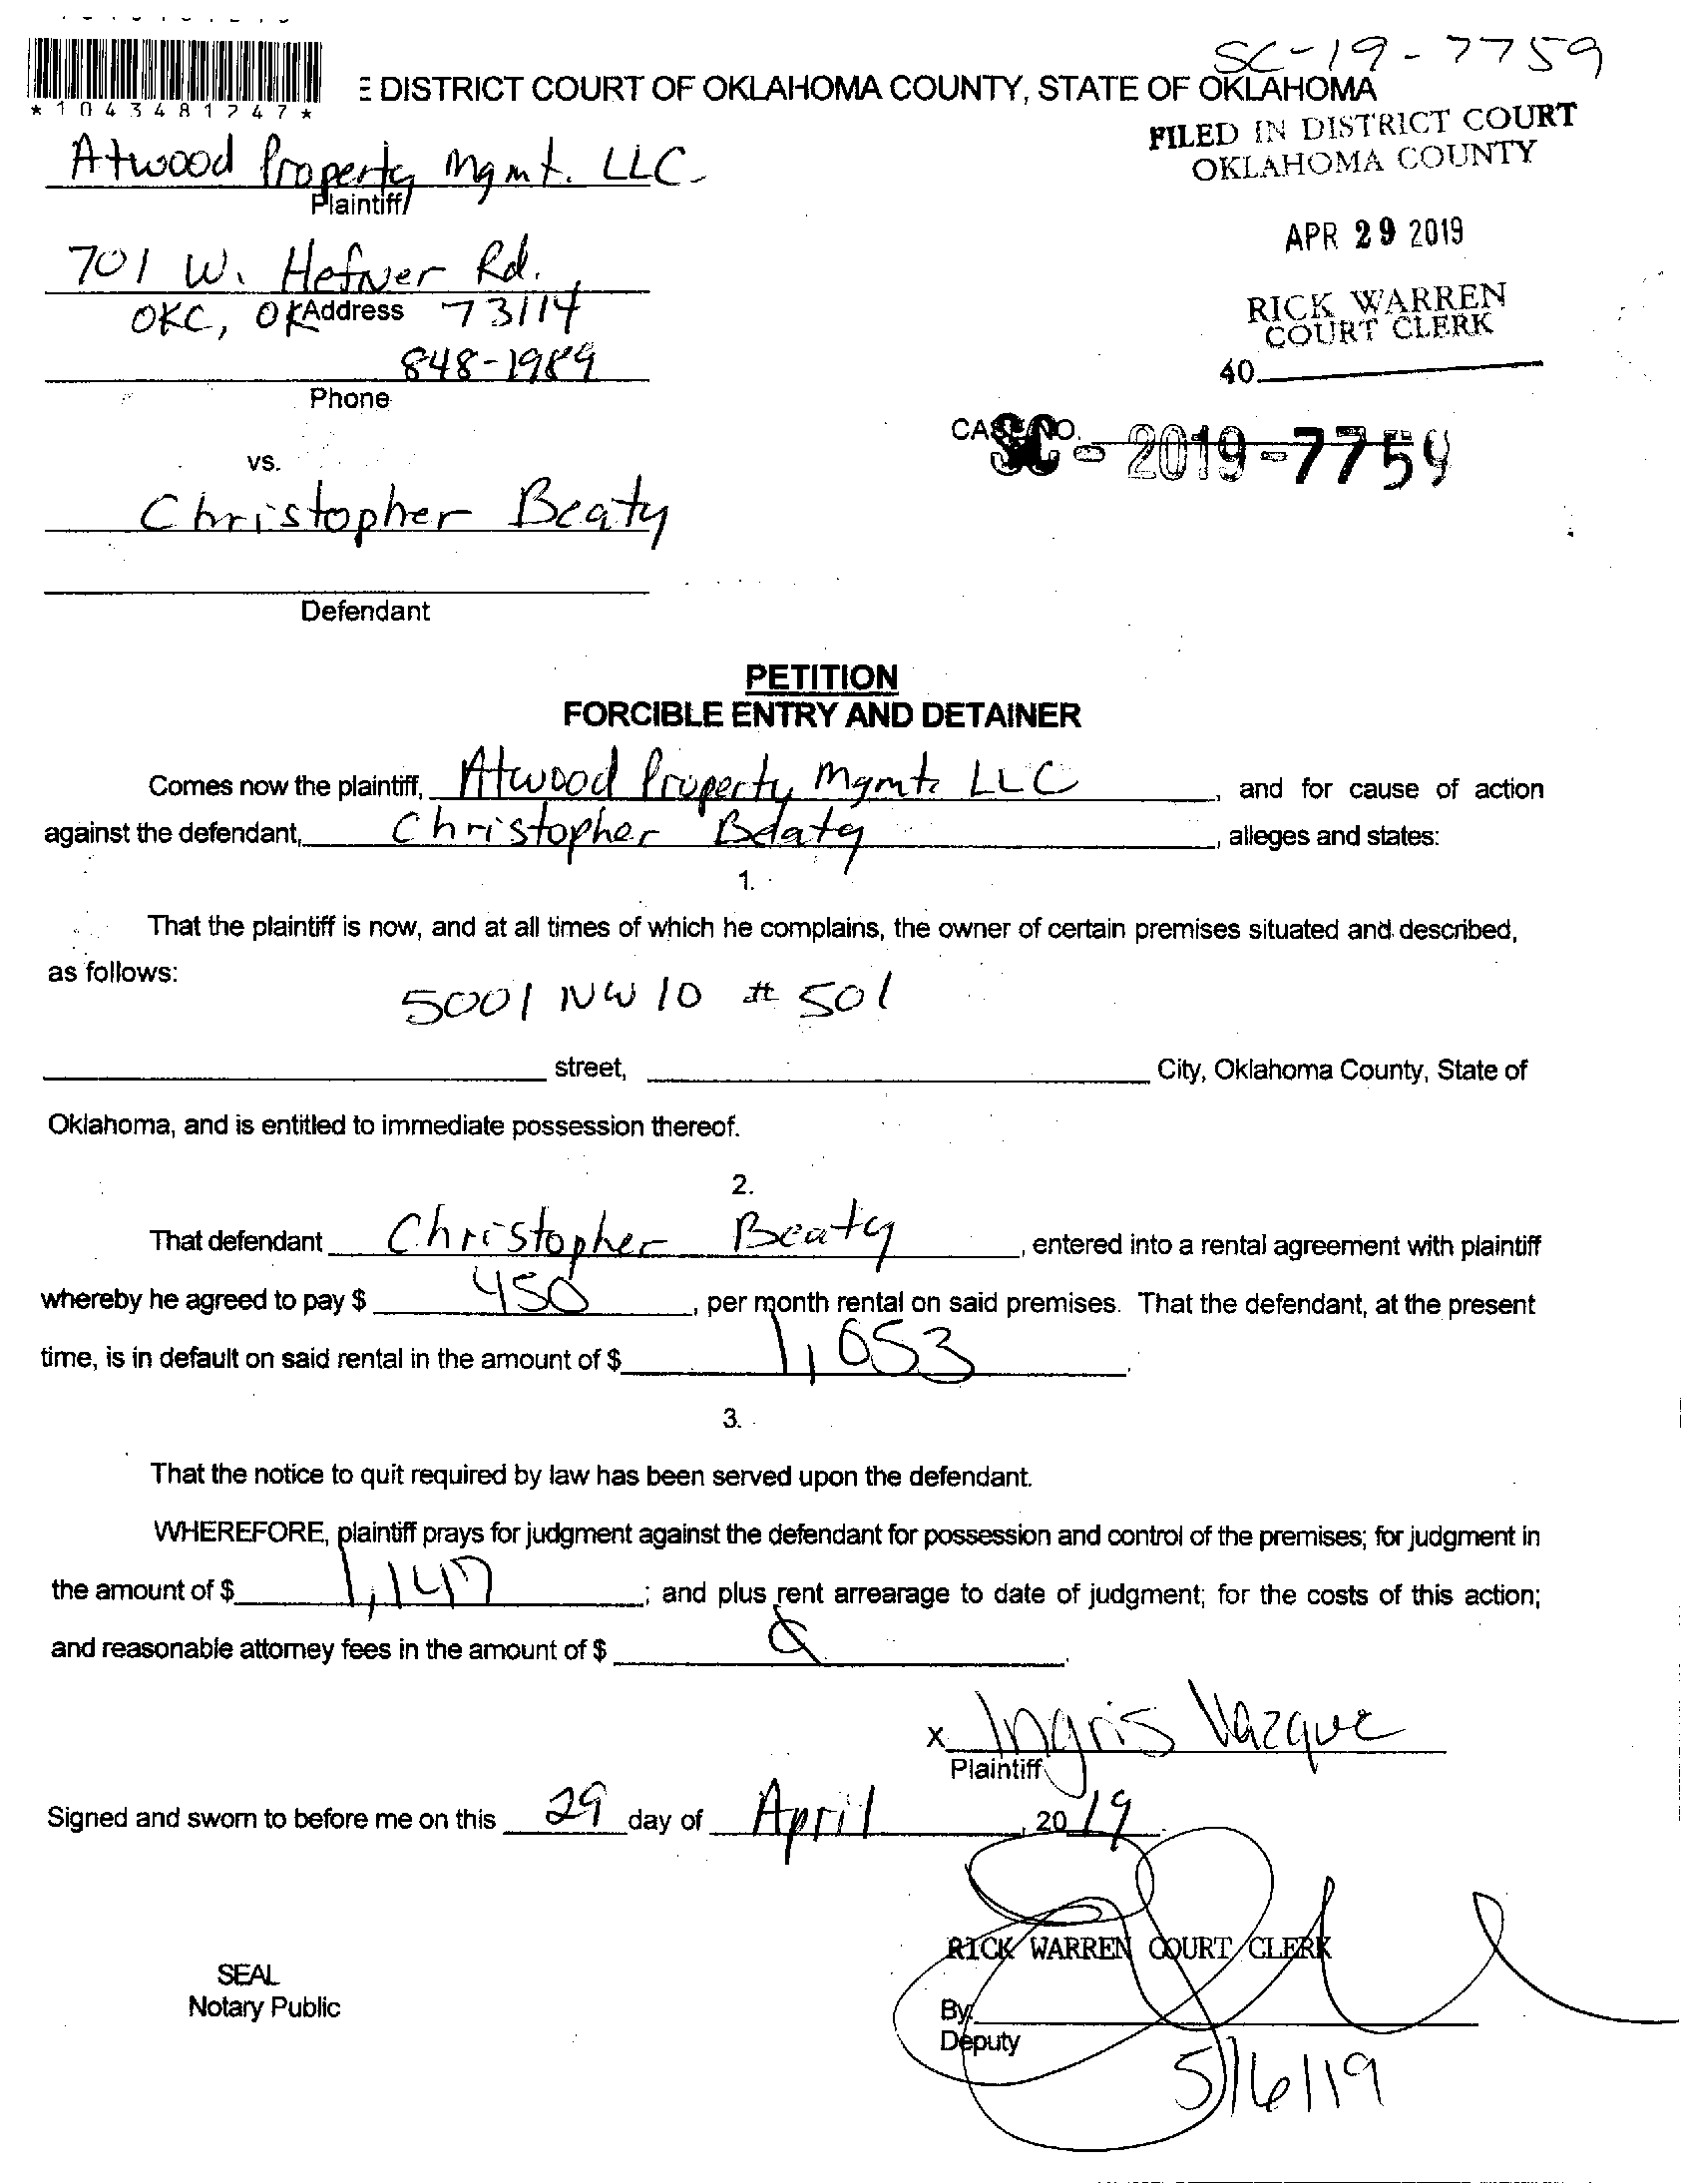 SC-19-7759
*1043481247*
E DISTRICT COURT OF OKLAHOMA COUNTY, STATE OF OKLAHOMA
FILED IN DISTRICT COURT
OKLAHOMA COUNTY
Atwood Property Mgmt. LLC
Plaintiff
APR 29 2019
701 W. Hefner Rd.
OKC, OK 73114
Address
RICK WARREN
COURT CLERK
848-1989
Phone
40
CASE NO. SC - 2019 - 7759
vs.
Christopher Beaty
Defendant
PETITION
FORCIBLE ENTRY AND DETAINER
Comes now the plaintiff, Atwood Property Mgmt. LLC, and for cause of action
against the defendant, Christopher Beaty, alleges and states:
1.
That the plaintiff is now, and at all times of which he complains, the owner of certain premises situated and described,
as follows:
5001 NW 10 # 501
street, City, Oklahoma County, State of
Oklahoma, and is entitled to immediate possession thereof.
2.
That defendant Christopher Beaty, entered into a rental agreement with plaintiff
whereby he agreed to pay $ 450, per month rental on said premises. That the defendant, at the present
time, is in default on said rental in the amount of $ 1,053.
3.
That the notice to quit required by law has been served upon the defendant.
WHEREFORE, plaintiff prays for judgment against the defendant for possession and control of the premises; for judgment in
the amount of $ 1,147; and plus rent arrearage to date of judgment; for the costs of this action;
and reasonable attorney fees in the amount of $
x Ingris Vazque
Plaintiff
Signed and sworn to before me on this 29 day of April, 2019
RICK WARREN COURT CLERK
SEAL
Notary Public
By
Deputy
5/16/19